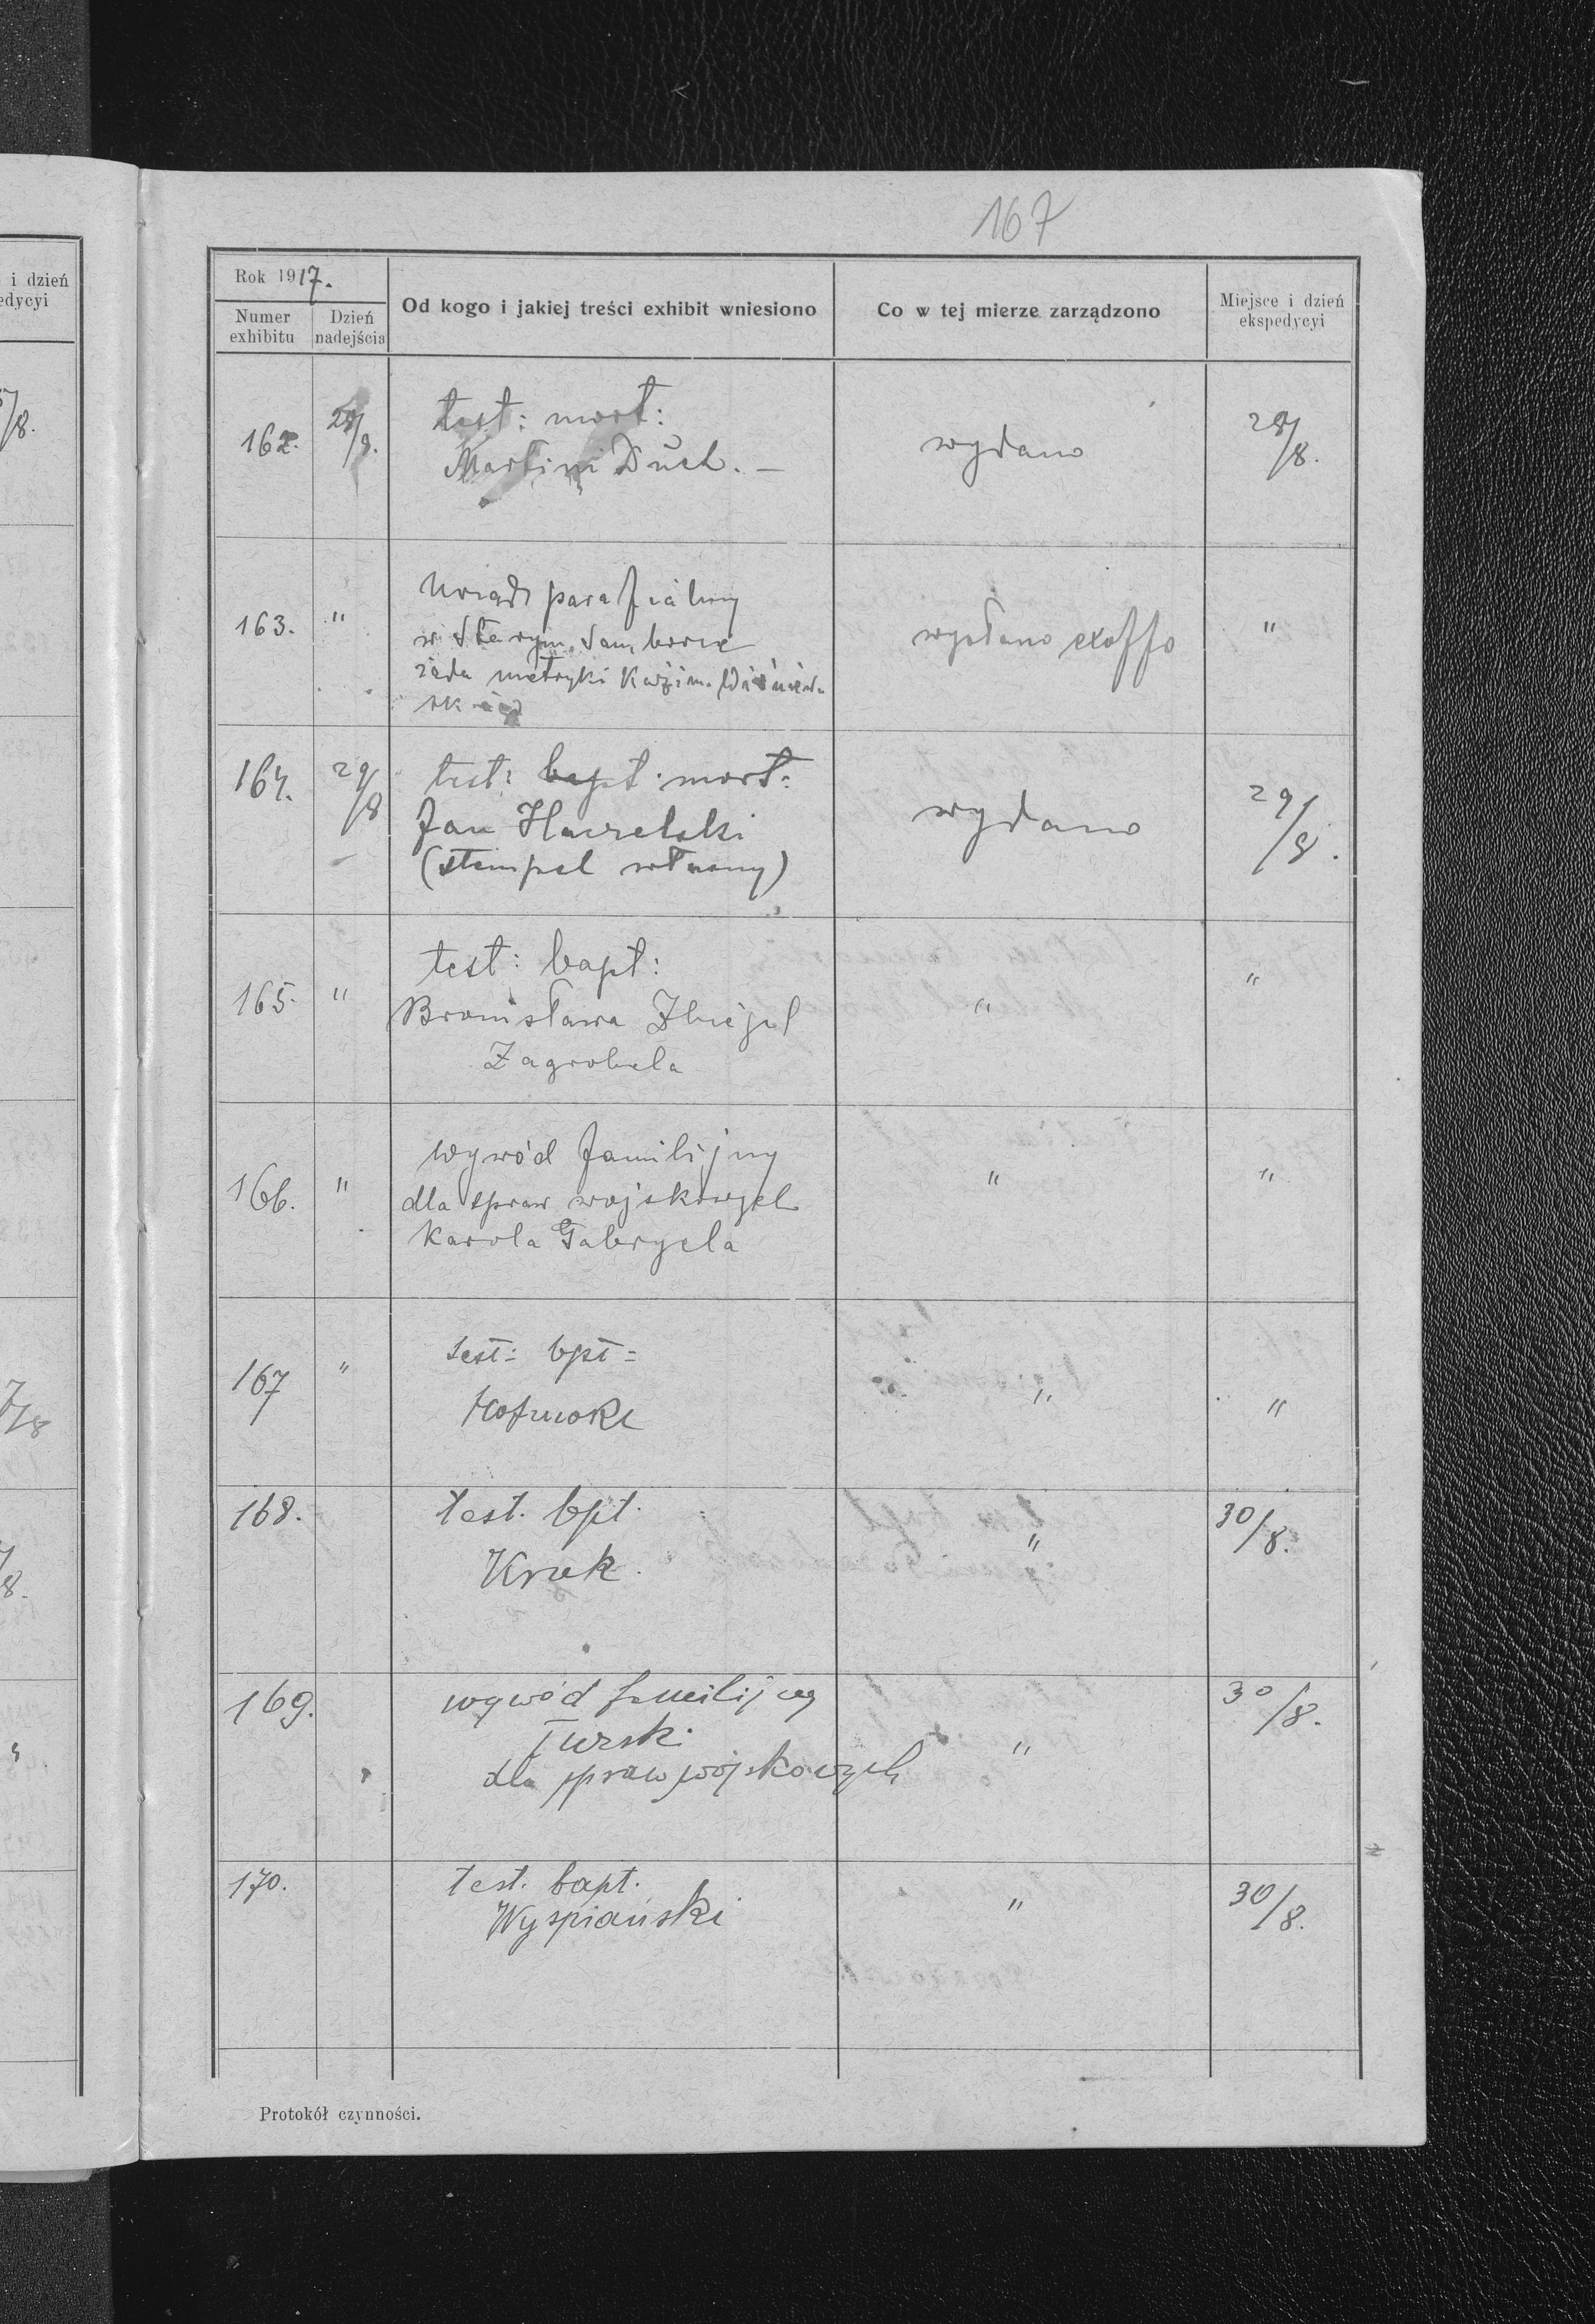 167
i dzień
edycyi
Rok 1917.
Numer exhibitu
Dzień nadejścia
Od kogo i jakiej treści exhibit wniesiono
Co w tej mierze zarządzono
Miejsce i dzień ekspedycyi
162. 28/8. test: mort: wydano 28/8.
Martini Duch. —
163. " Urząd parafialny wysłano exoffo "
w Starym Samborze
żąda metryki Kazim.
164. 29/8 test: bapt. mort: wydano 29/8.
Jan
(stempel własny)
165. " test: bapt: " "
Bronisława
Zagrobela
166. " wywód familijny " "
dla spraw wojskowych
Karola Gabryela
167 " test: bpt: " "
168. test. bpt. " 30/8.
Kruk.
169. wywód familijny " 30/8.
Turski
dla spraw wojskowych
170. test. bapt. " 30/8.
Wyspiański
Protokół czynności.